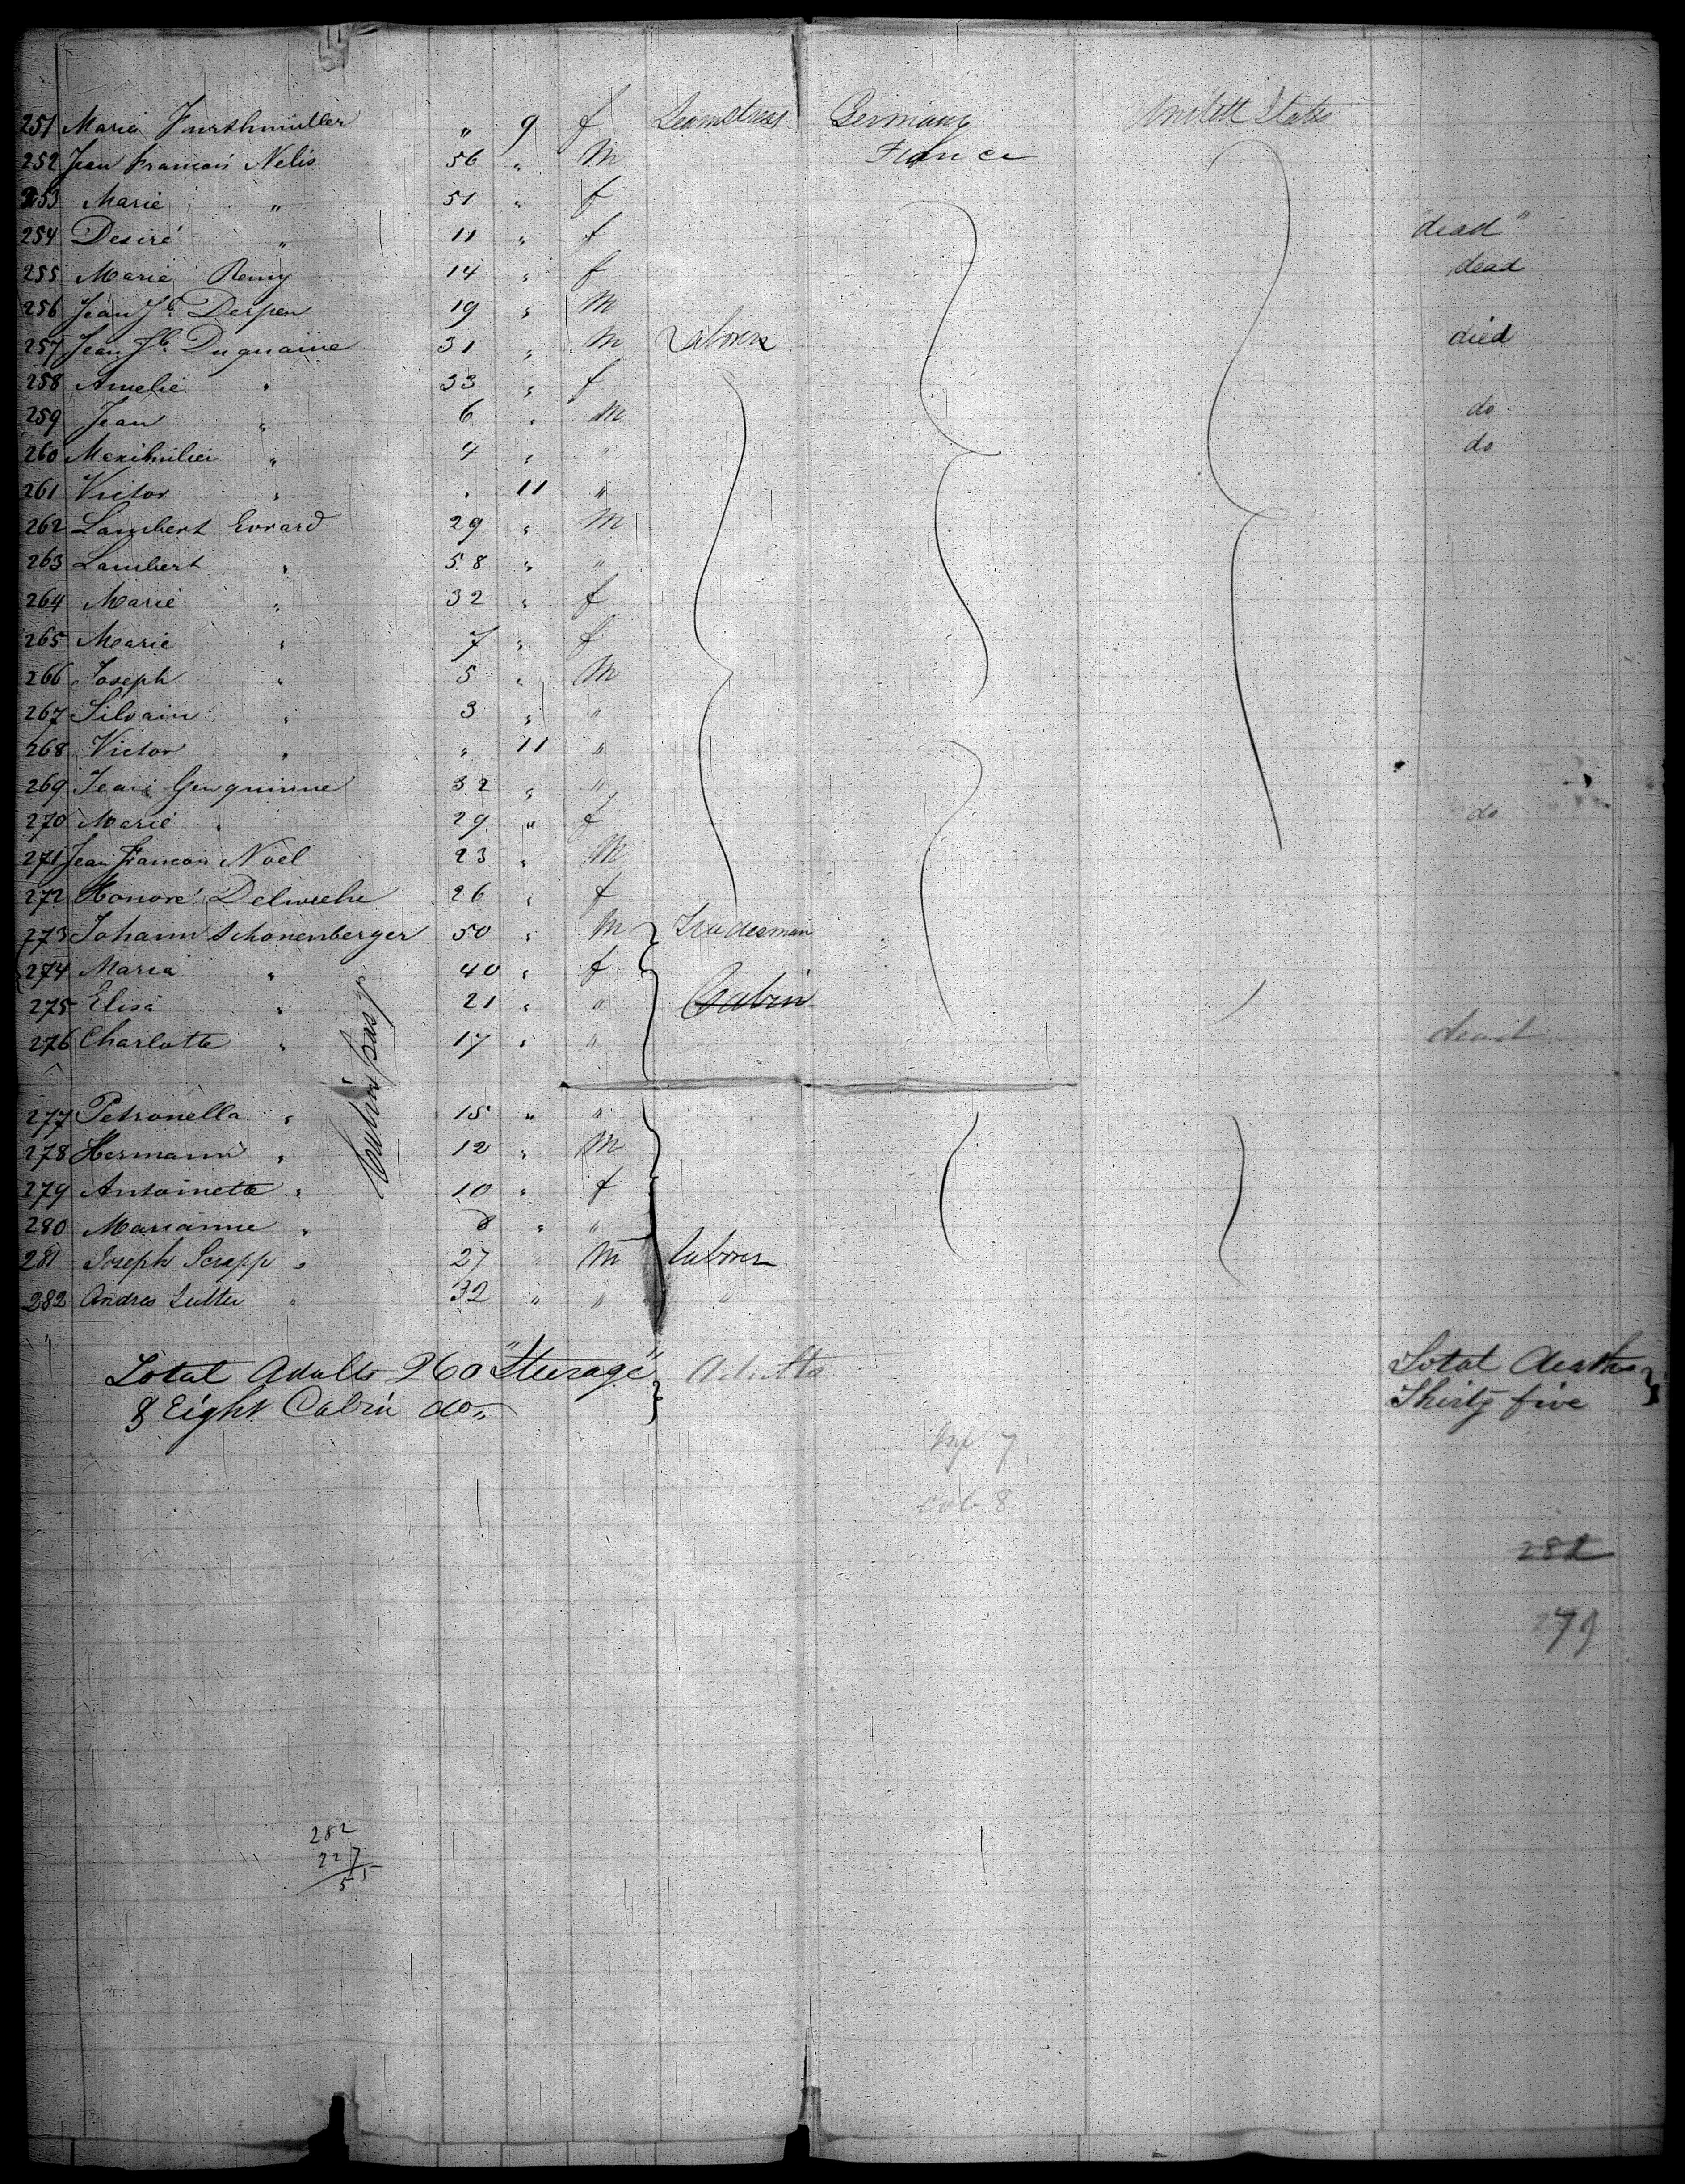 11
251 Maria Furthmüller " 9 f Seamstress Germany Unitett States
252 Jean Francois Nelis 56 " M France
253 Marie " 51 " f
254 Desiré " 11 " f dead "
255 Marie Remy 14 " f dead
256 Jean Jb. Derpen 19 " M
257 Jean Jb. Duquaine 31 " M Laborer died
258 Amelie " 33 " f
259 Jean " 6 " M do
260 Meximilien " 4 " " do
261 Victor " " 11 "
262 Lambert Evrard 29 " M
263 Lambert " 58 " "
264 Marie " 32 " f
265 Marie " 7 " f
266 Joseph " 5 " M
267 Silvain " 3 " "
268 Victor " " 11 "
269 Jean 32 " "
270 Marie " 29 " f do
271 Jean Francois Noel 23 " M
272 Honoré Delwiche 26 " f
273 Johann Schonenberger 50 " M Tradesman
274 Maria " 40 " f
275 Elisa " 21 " " Cabin
276 Charlotte " 17 " " dead
277 Petronella " 15 " "
278 Hermann " 12 " M
279 Antoinette " 10 " f
280 Marianne " 8 " "
281 Joseph Scrapp " 27 " M laborer
282 Andres Sutter " 32 " " "
Total Adults 260 "Steerage" Adults
& Eight Cabin do "
Total deaths
Thirty five
Inf 7
Cab 8
282
279
282
227
55